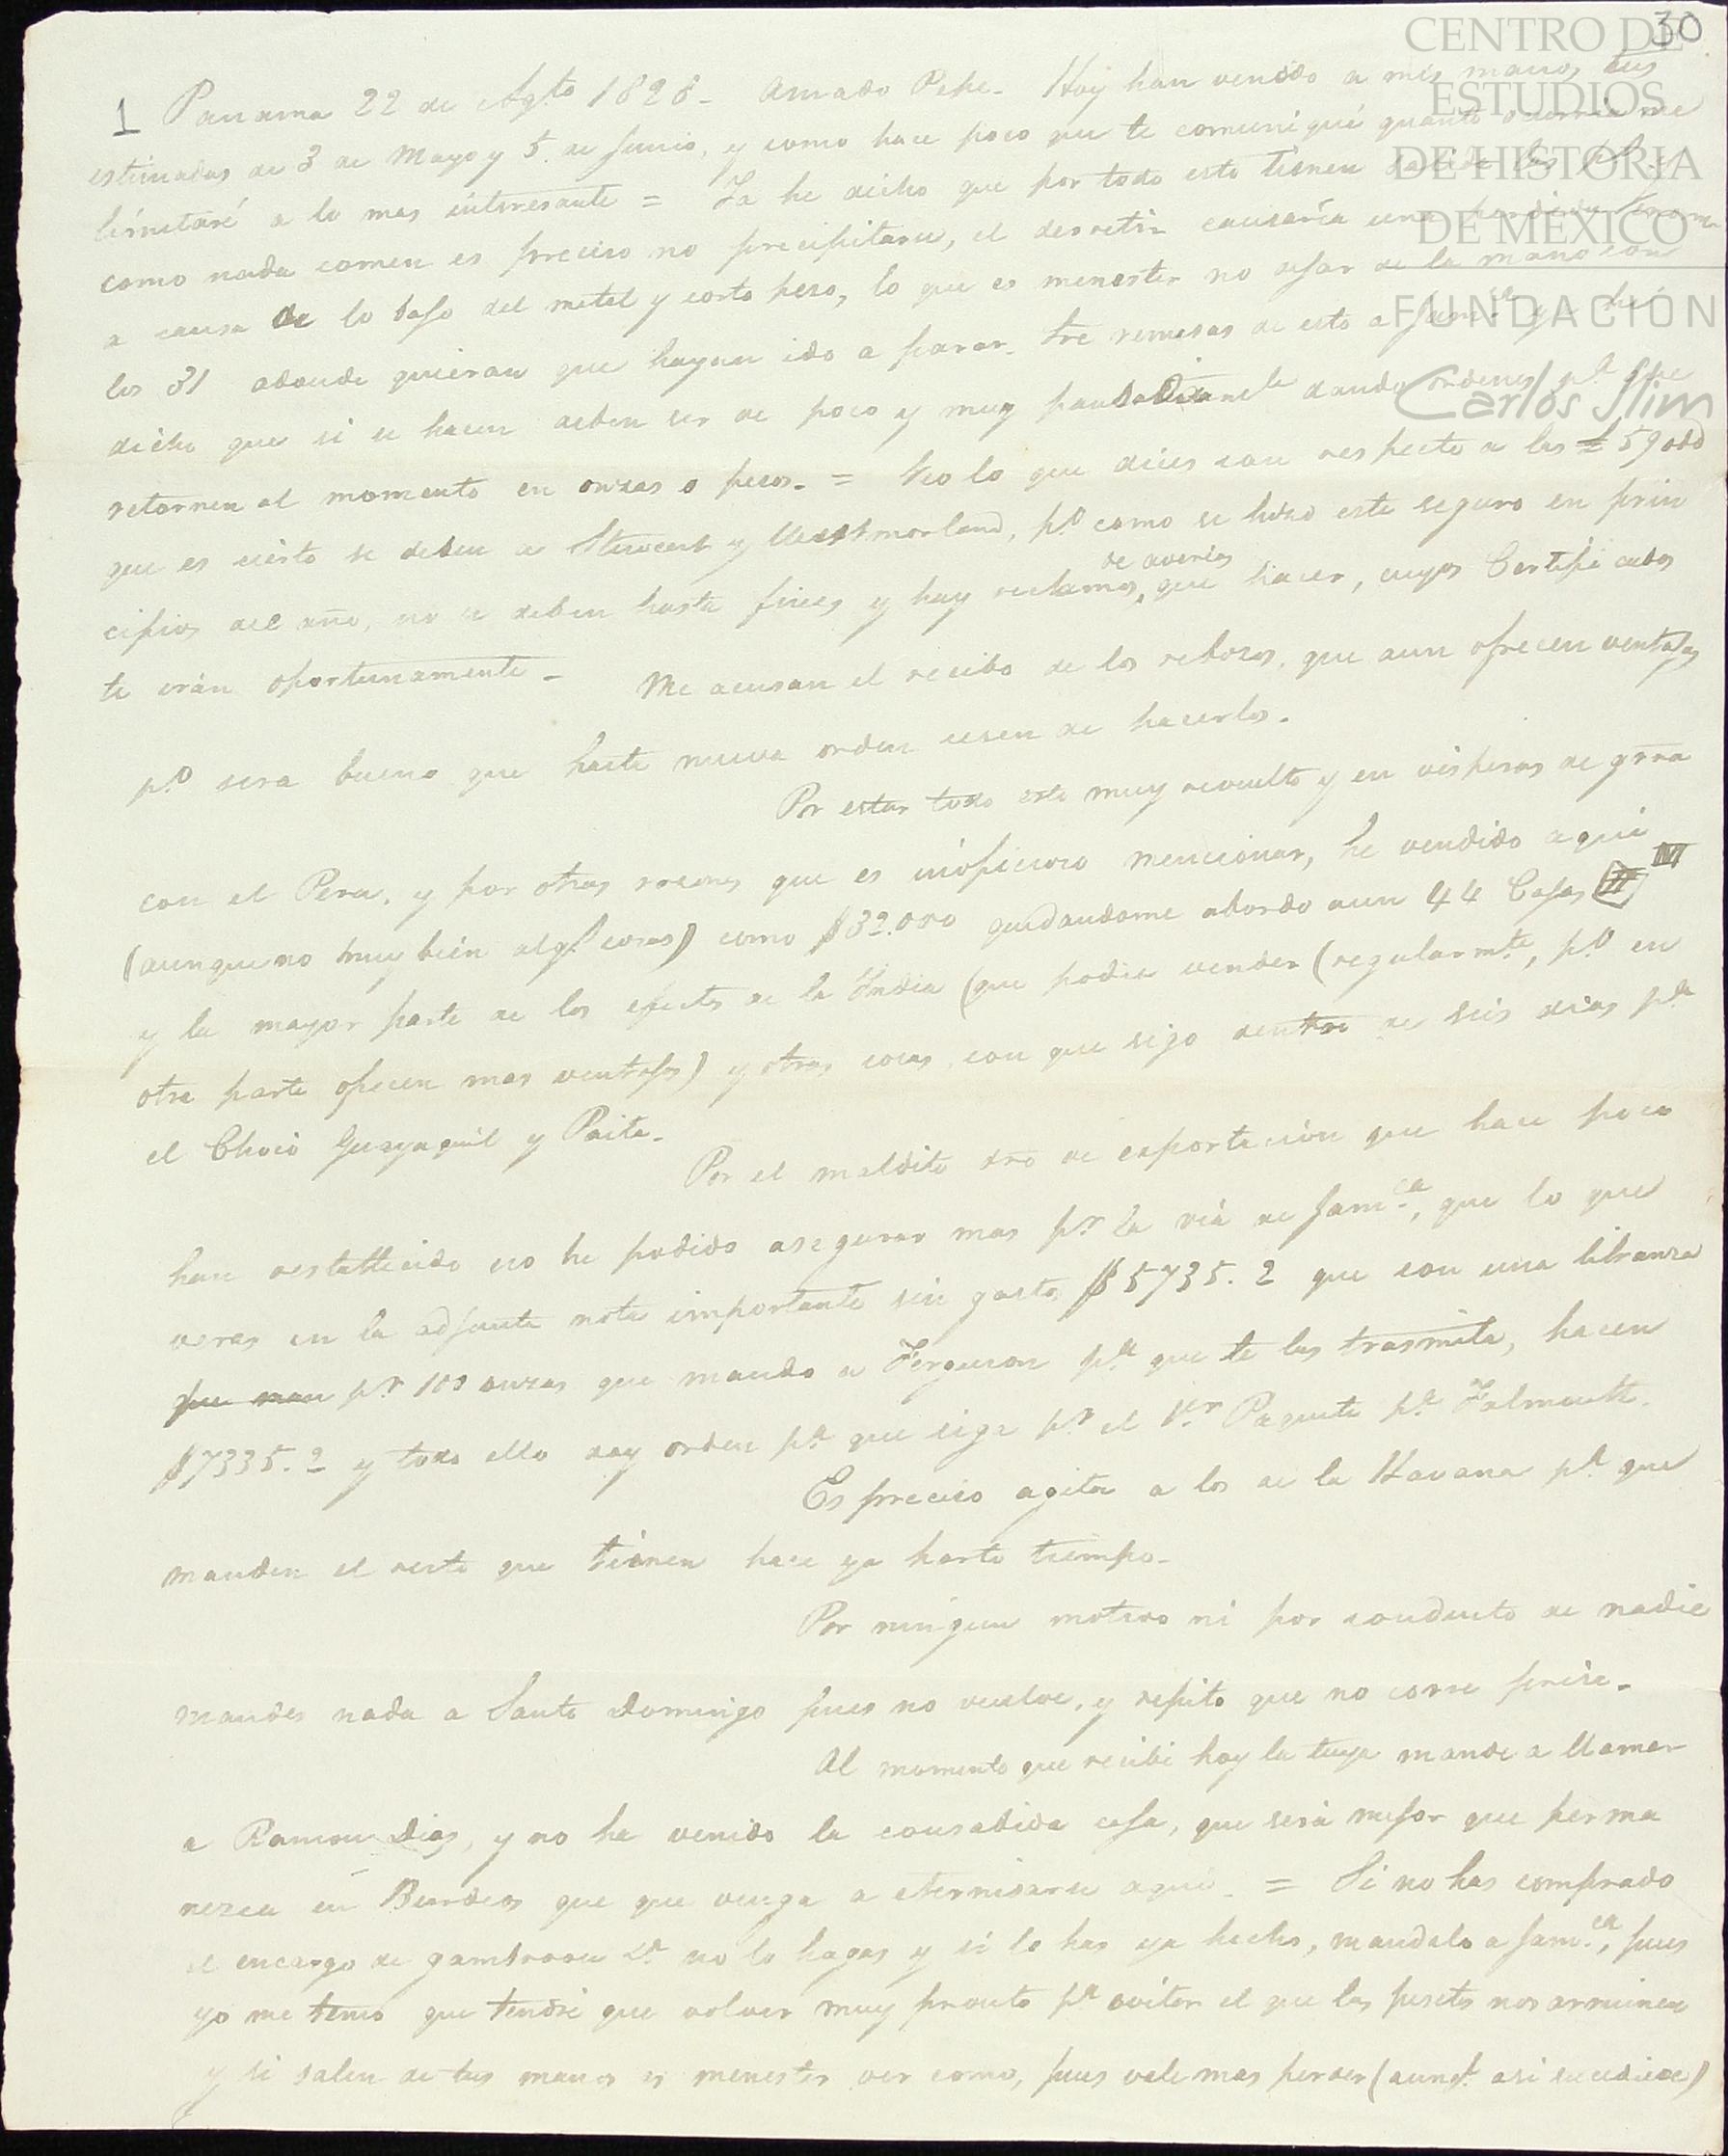 30
CENTRO DE
ESTUDIOS
DE HISTORIA
DE MÉXICO
FUNDACIÓN
Carlos Slim
1 Panama 22 de Agto 1828 - Amado Pepe - Hoy han venido a mis manos tus
estimadas de 3 de Mayo y 5 de Junio, y como hace poco que te comuniqué quanto ocurria me
limitaré a lo mas interesante = Ya he dicho que por todo esto tienen
como nada comen es preciso no precipitarse, el derretir causaría una perdida
a causa de lo bajo del metal y corto peso, lo que es menester no dejar de la mano con
los 31 adonde quieran que hayan ido a parar. Tre remesas de esto a Jamca y he
dicho que si se hacen deben ser de poco y muy pausadamte dando ordenes pa que
retornen al momento en onzas o pesos. = Veo lo que dices con respecto a las £ 59000
que es cierto se deben a Stewart y Westmorland, po como se hizo este seguro en prin
cipios del año, no se deben hasta fines y hay reclamos de averias que hacer, cuyos Certificados
te irán oportunamente - Me acusan el recibo de los rebozos, que aun ofrecen ventajas
po sera bueno que hasta nueva orden cesen de hacerlos.
Por estar todo esto muy revuelto y en visperas de grra
con el Peru, y por otras razones que es inoficioso mencionar, he vendido aqui
(aunque no muy bien algs cosas) como $32.000 quedandome abordo aun 44 Cajas
y la mayor parte de los efectos de la India (que podia vender (regularmte, po en
otra parte ofrecen mas ventajas) y otras cosas con que sigo dentro de seis dias pa
el Chocó Guayaquil y Paita.
Por el maldito dro de exportacion que hace poco
han establecido no he podido asegurar mas pr la via de Jamca, que lo que
veras en la adjunta nota importante sin gastos $5735.2 que con una libranza
pr 100 onzas que mando a Ferguson pa que te las trasmita, hacen
$7335.2 y todo ello doy orden pa que siga pr el 1er Paquete pa Falmouth.
Es preciso agitar a los de la Havana pa que
manden el resto que tienen hace ya harto tiempo.
Por ningun motivo ni por conducto de nadie
mandes nada a Santo Domingo pues no vuelve, y repito que no corre prisa.
Al momento que recibi hoy la tuya mande a llamar
a Ramon Dias, y no ha venido la consabida caja, que será mejor que perma
nezca en Burdeos que que venga a eternisarse aqui. = Si no has comprado
el encargo de no lo hagas y si lo has ya hecho, mandalo a Jamca, pues
yo me temo que tendré que volver muy pronto pa evitar el que las pesetas nos arruinen
y si salen de tus manos es menester ver como, pues vale mas perder (aunqe asi sucediese)